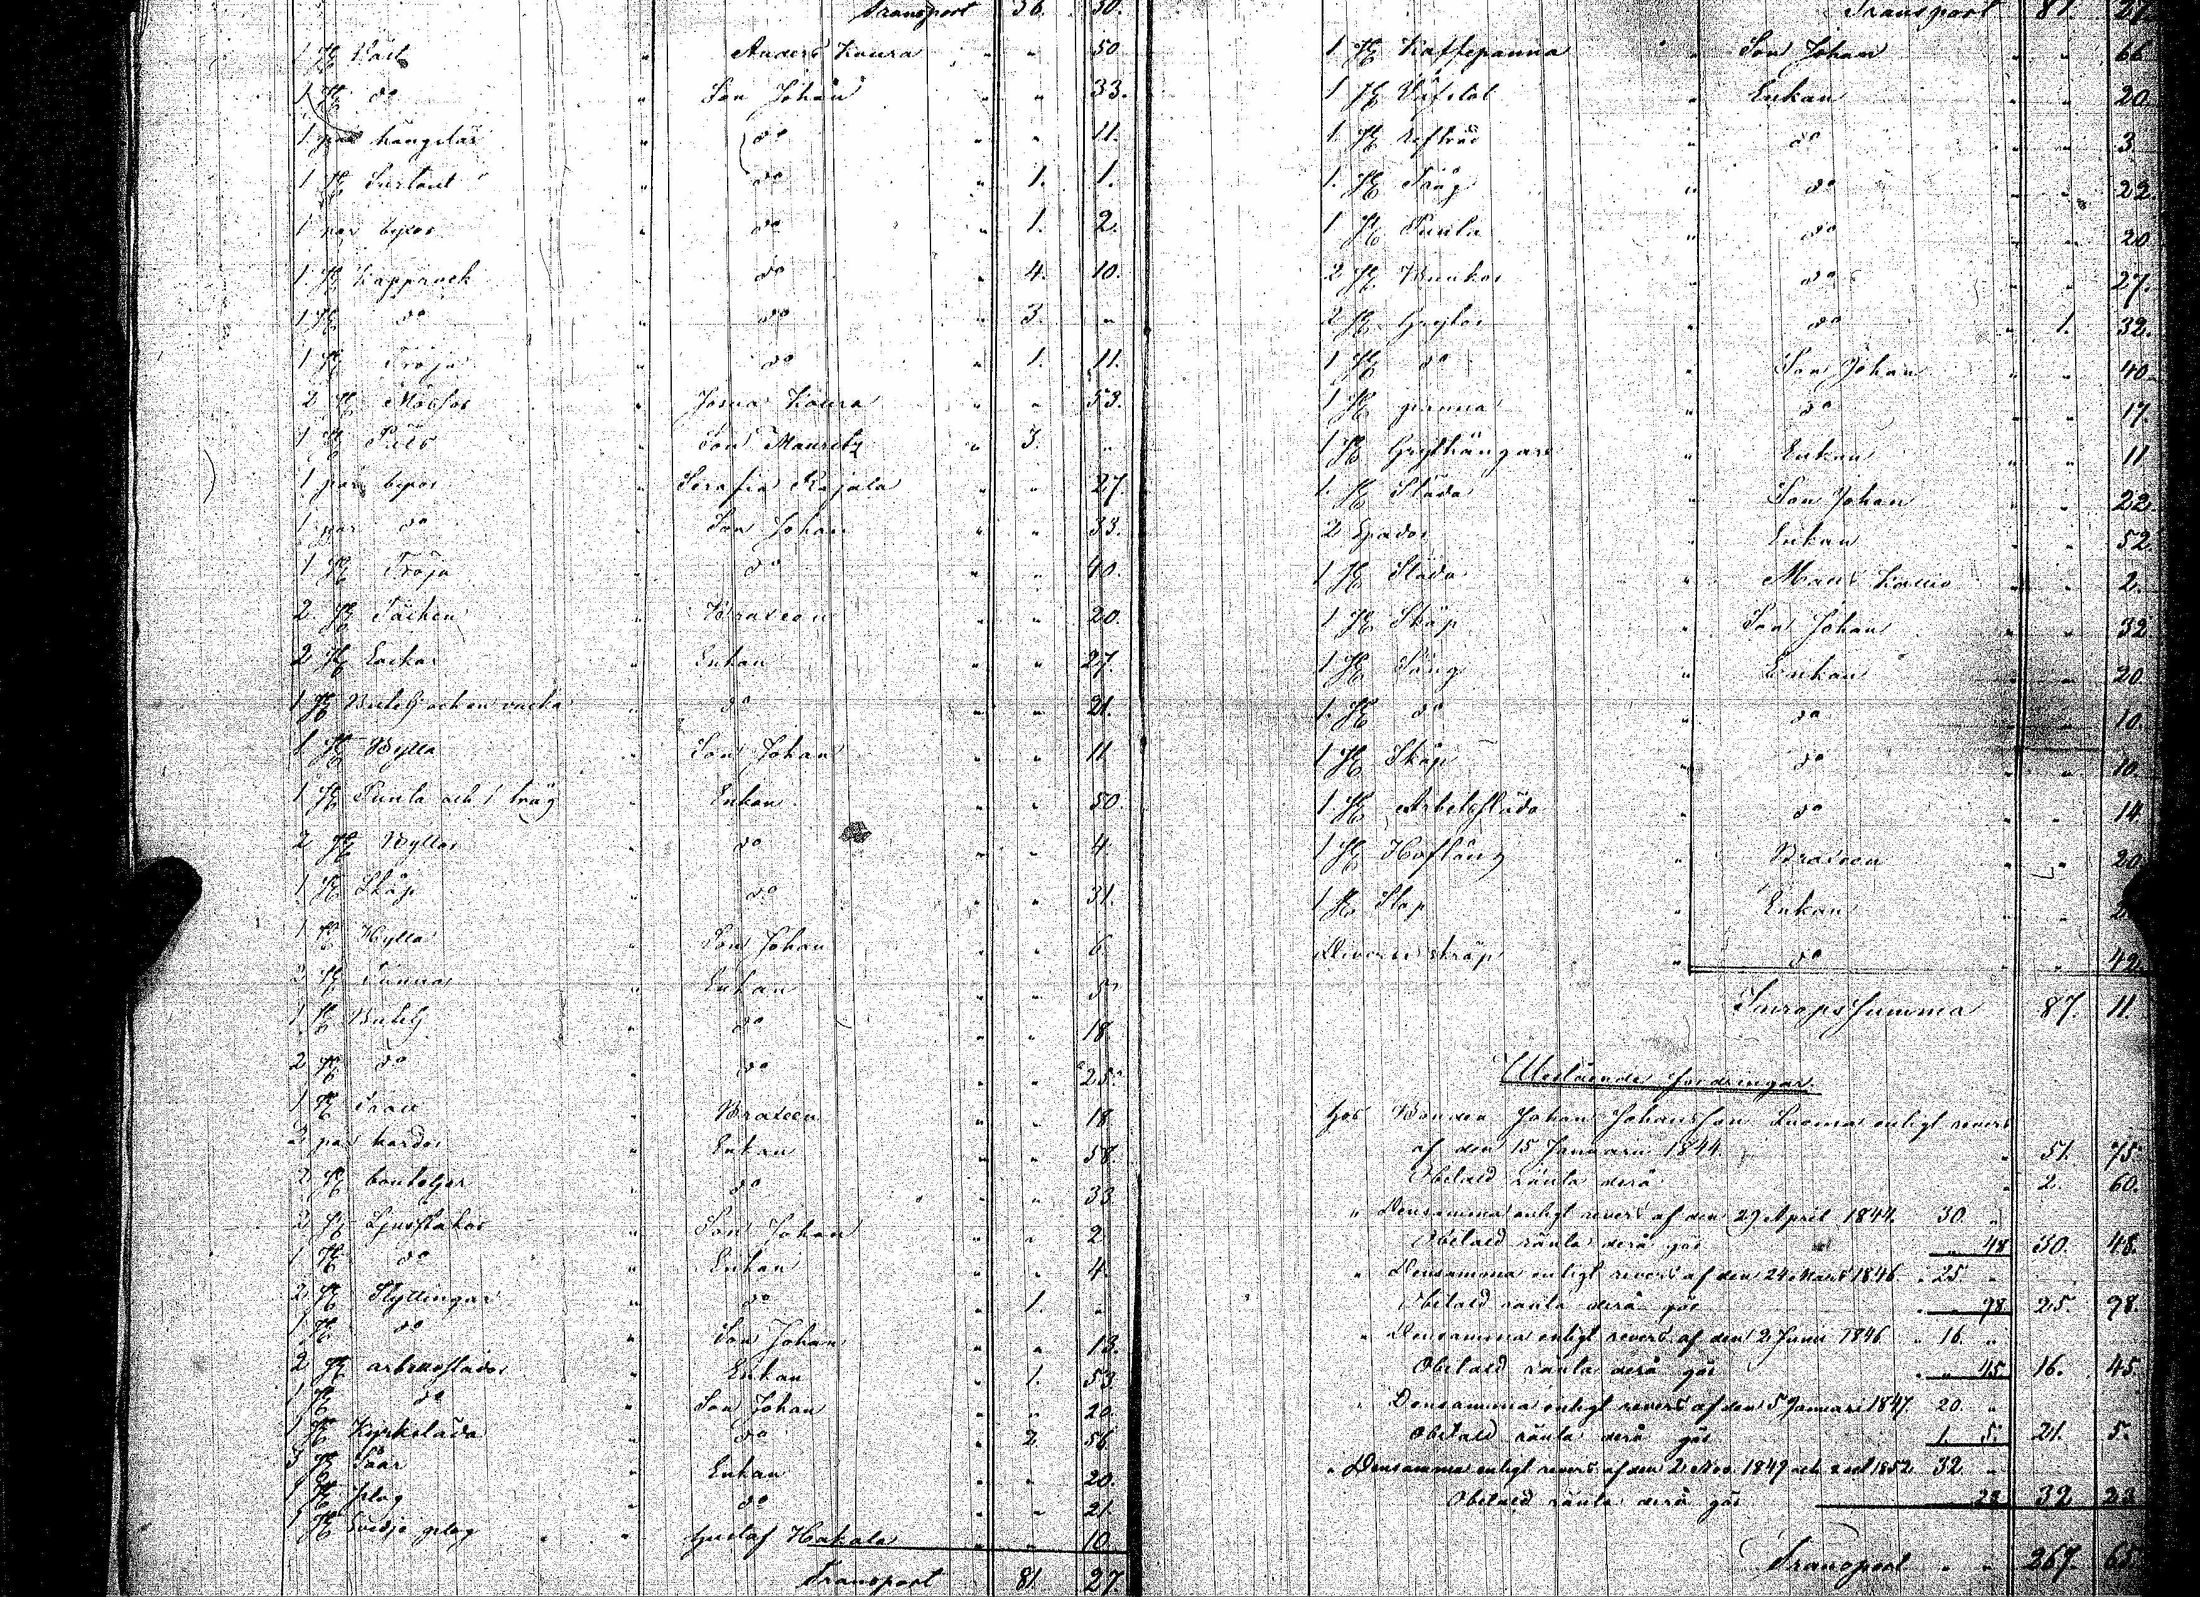 Transport 56. 30.
1 st " Anders Kaura " " 50
1 st do " Son Johan " " 33.
1 par hängslar " do " " 11.
1 st Surtout " do " 1. 1.
1 par byxor " do " 1. 2.
1 st Kapprock " do " 4. 10.
1 st do " do " 3. "
1 st Tröja " do " 1. 11.
2 st Mössor " Josua Kaura " " 53.
1 st Päls " Son Mauritz " 3. "
1 par byxor " Serafia Rajala " " 27.
1 par do " Son Johan " " 33.
1 st Tröja " do " " 40.
2 st " " " 20.
2 st " Enkan " " 27.
1 st Butelj och en " do " " 21.
1 st Bytta " Son Johan " " 11
1 st Punta och 1 tråg " Enkan " " 50.
2 st Byttor " do " " 4.
1 st Skåp " do " " 31.
1 st Hylla " Son Johan " " 6.
2 st Tunnor " Enkan " " 5
1 st Butelj " do " " 18.
2 st do " do " " 25.
1 st " " " 18
2 par kardor " Enkan " " 58.
2 st bouteljer " do " " 33
2 st Ljusstakar " Son Johan " " 2
1 st do " Enkan " " 4.
2 st Skyttingar " do " 1. "
1 st do " Son Johan " " 13.
2 st arbetsslädor " Enkan " 1. 53
1 st do " Son Johan " " 20.
1 st Kyrksläda " do " 2 56
3 st Såar " Enkan " " 20.
1 st plog " do " " 21.
1 st Svedje plog " Gustaf Hakala " " 10
Transport 81 27
Transport 81. 27.
1 st Kaffepanna " Son Johan " " 66
1 st Väfstol " Enkan " " 20
1 st " do " " 3
1. st Tråg " do " " 22.
1 st Punta " do " " 20
2 st Bunkar " do " " 27.
2 st Grytor " do " 1. 32.
1 st do " Son Johan " " 40.
1 st panna " do " " 17.
1 st Grythängare " Enkan " " 11
1. st Släda " Son Johan " " 22.
2 Spador " Enkan " " 52.
1 st Släda " Mans " " 2.
1 st Skåp " Son Johan " " 32
1 st Säng " Enkan " " 20.
1. st do " do " " 10.
1 st Skåp " do " " 10.
1. st Arbetssläda " do " " 14.
1 st " " " 20
1 st Slap " Enkan
Diverse skräp " do " " 42.
Inropssumma 87. 11.
Utestående fordringar.
hos Bonden Johan Johansson Luoma enligt revers
af den 15 Januarii 1844. " 51. 75.
Obetald ränta derå " 2. 60.
" Densamma enligt revers af den 29 April 1844. 30. "
Obetald ränta derå gör " 48 30. 48.
" Densamma enligt revers af den 24 Mars 1846 " 25. "
Obetald ränta derå gör " 98 25. 98.
" Densamma enligt revers af den 2 Junii 1846 " 16. "
Obetald ränta derå gör " 45 16. 45.
" Densamma enligt revers af den 5 Januari 1847. 20. "
Obetald ränta derå gör 1. 5. 21. 5.
" Densamma enligt revers af den 2 Nov. 1849 och 1852. 32 "
Obetald ränta derå gör 23 32 23
Transport " " 267. 65